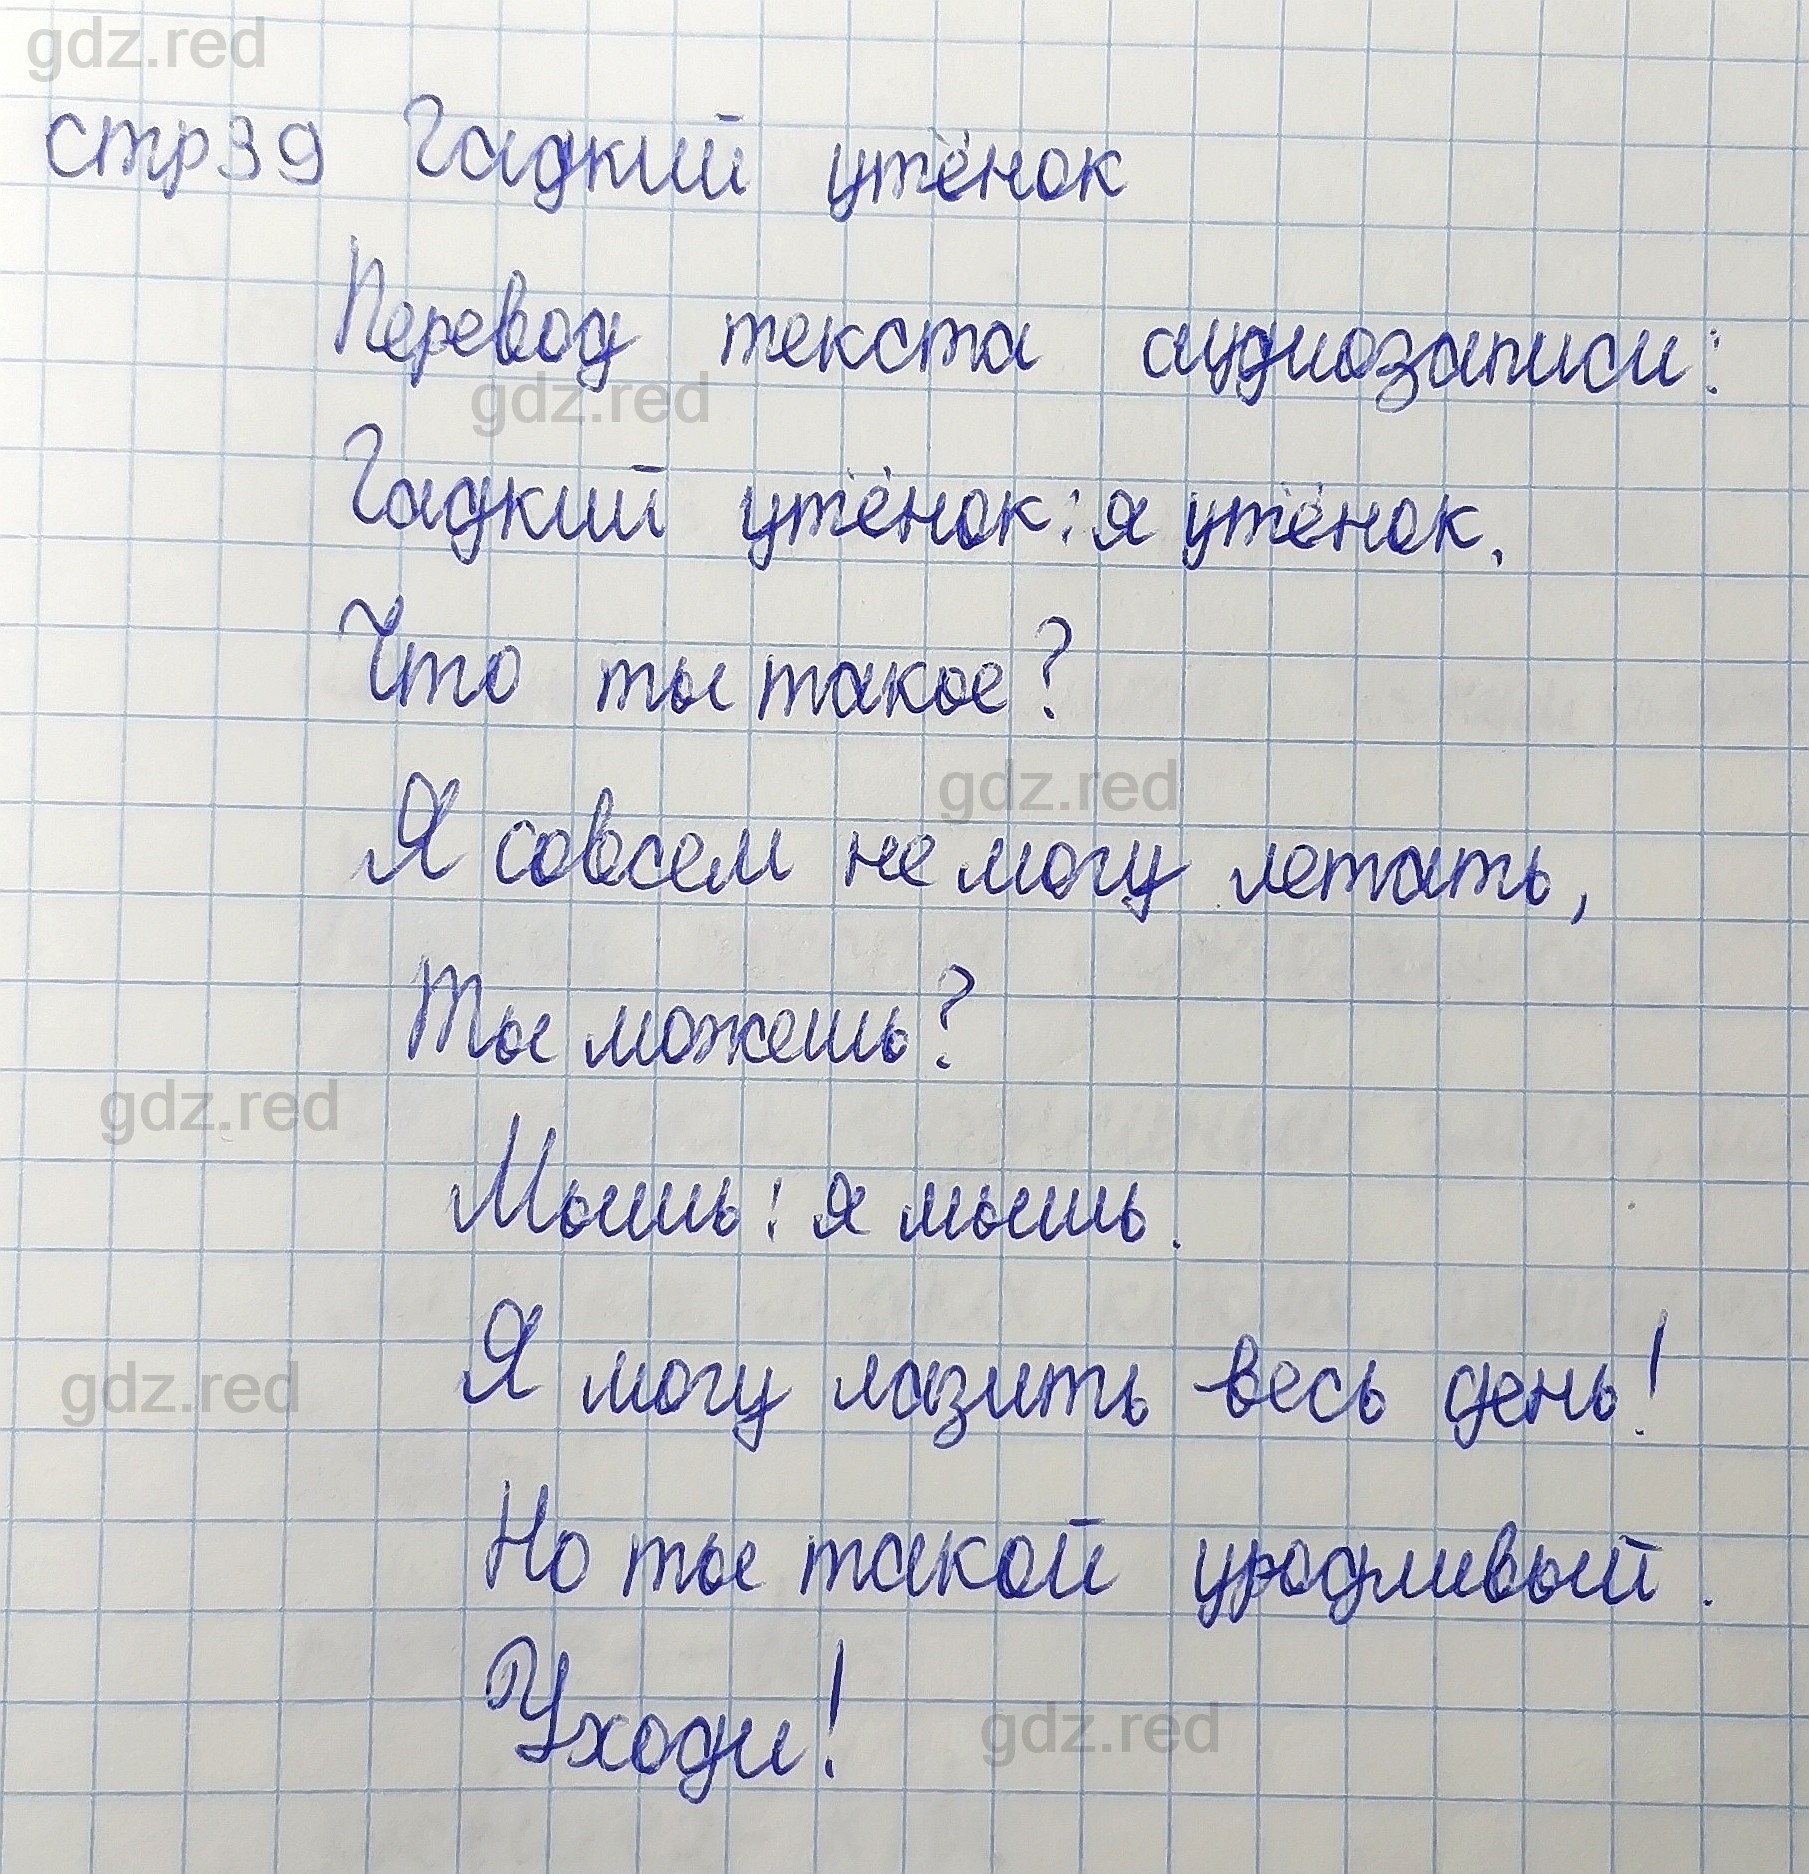 gdz.red
стр 39 Гадкий утёнок
Перевод текста аудиозаписи:
gdz.red
Гадкий утёнок: я утёнок.
Что ты такое?
gdz.red
Я совсем не могу летать,
Ты можешь?
gdz.red
Мышь: я мышь.
Я могу лазить весь день!
gdz.red
Но ты такой уродливый.
Уходи!
gdz.red